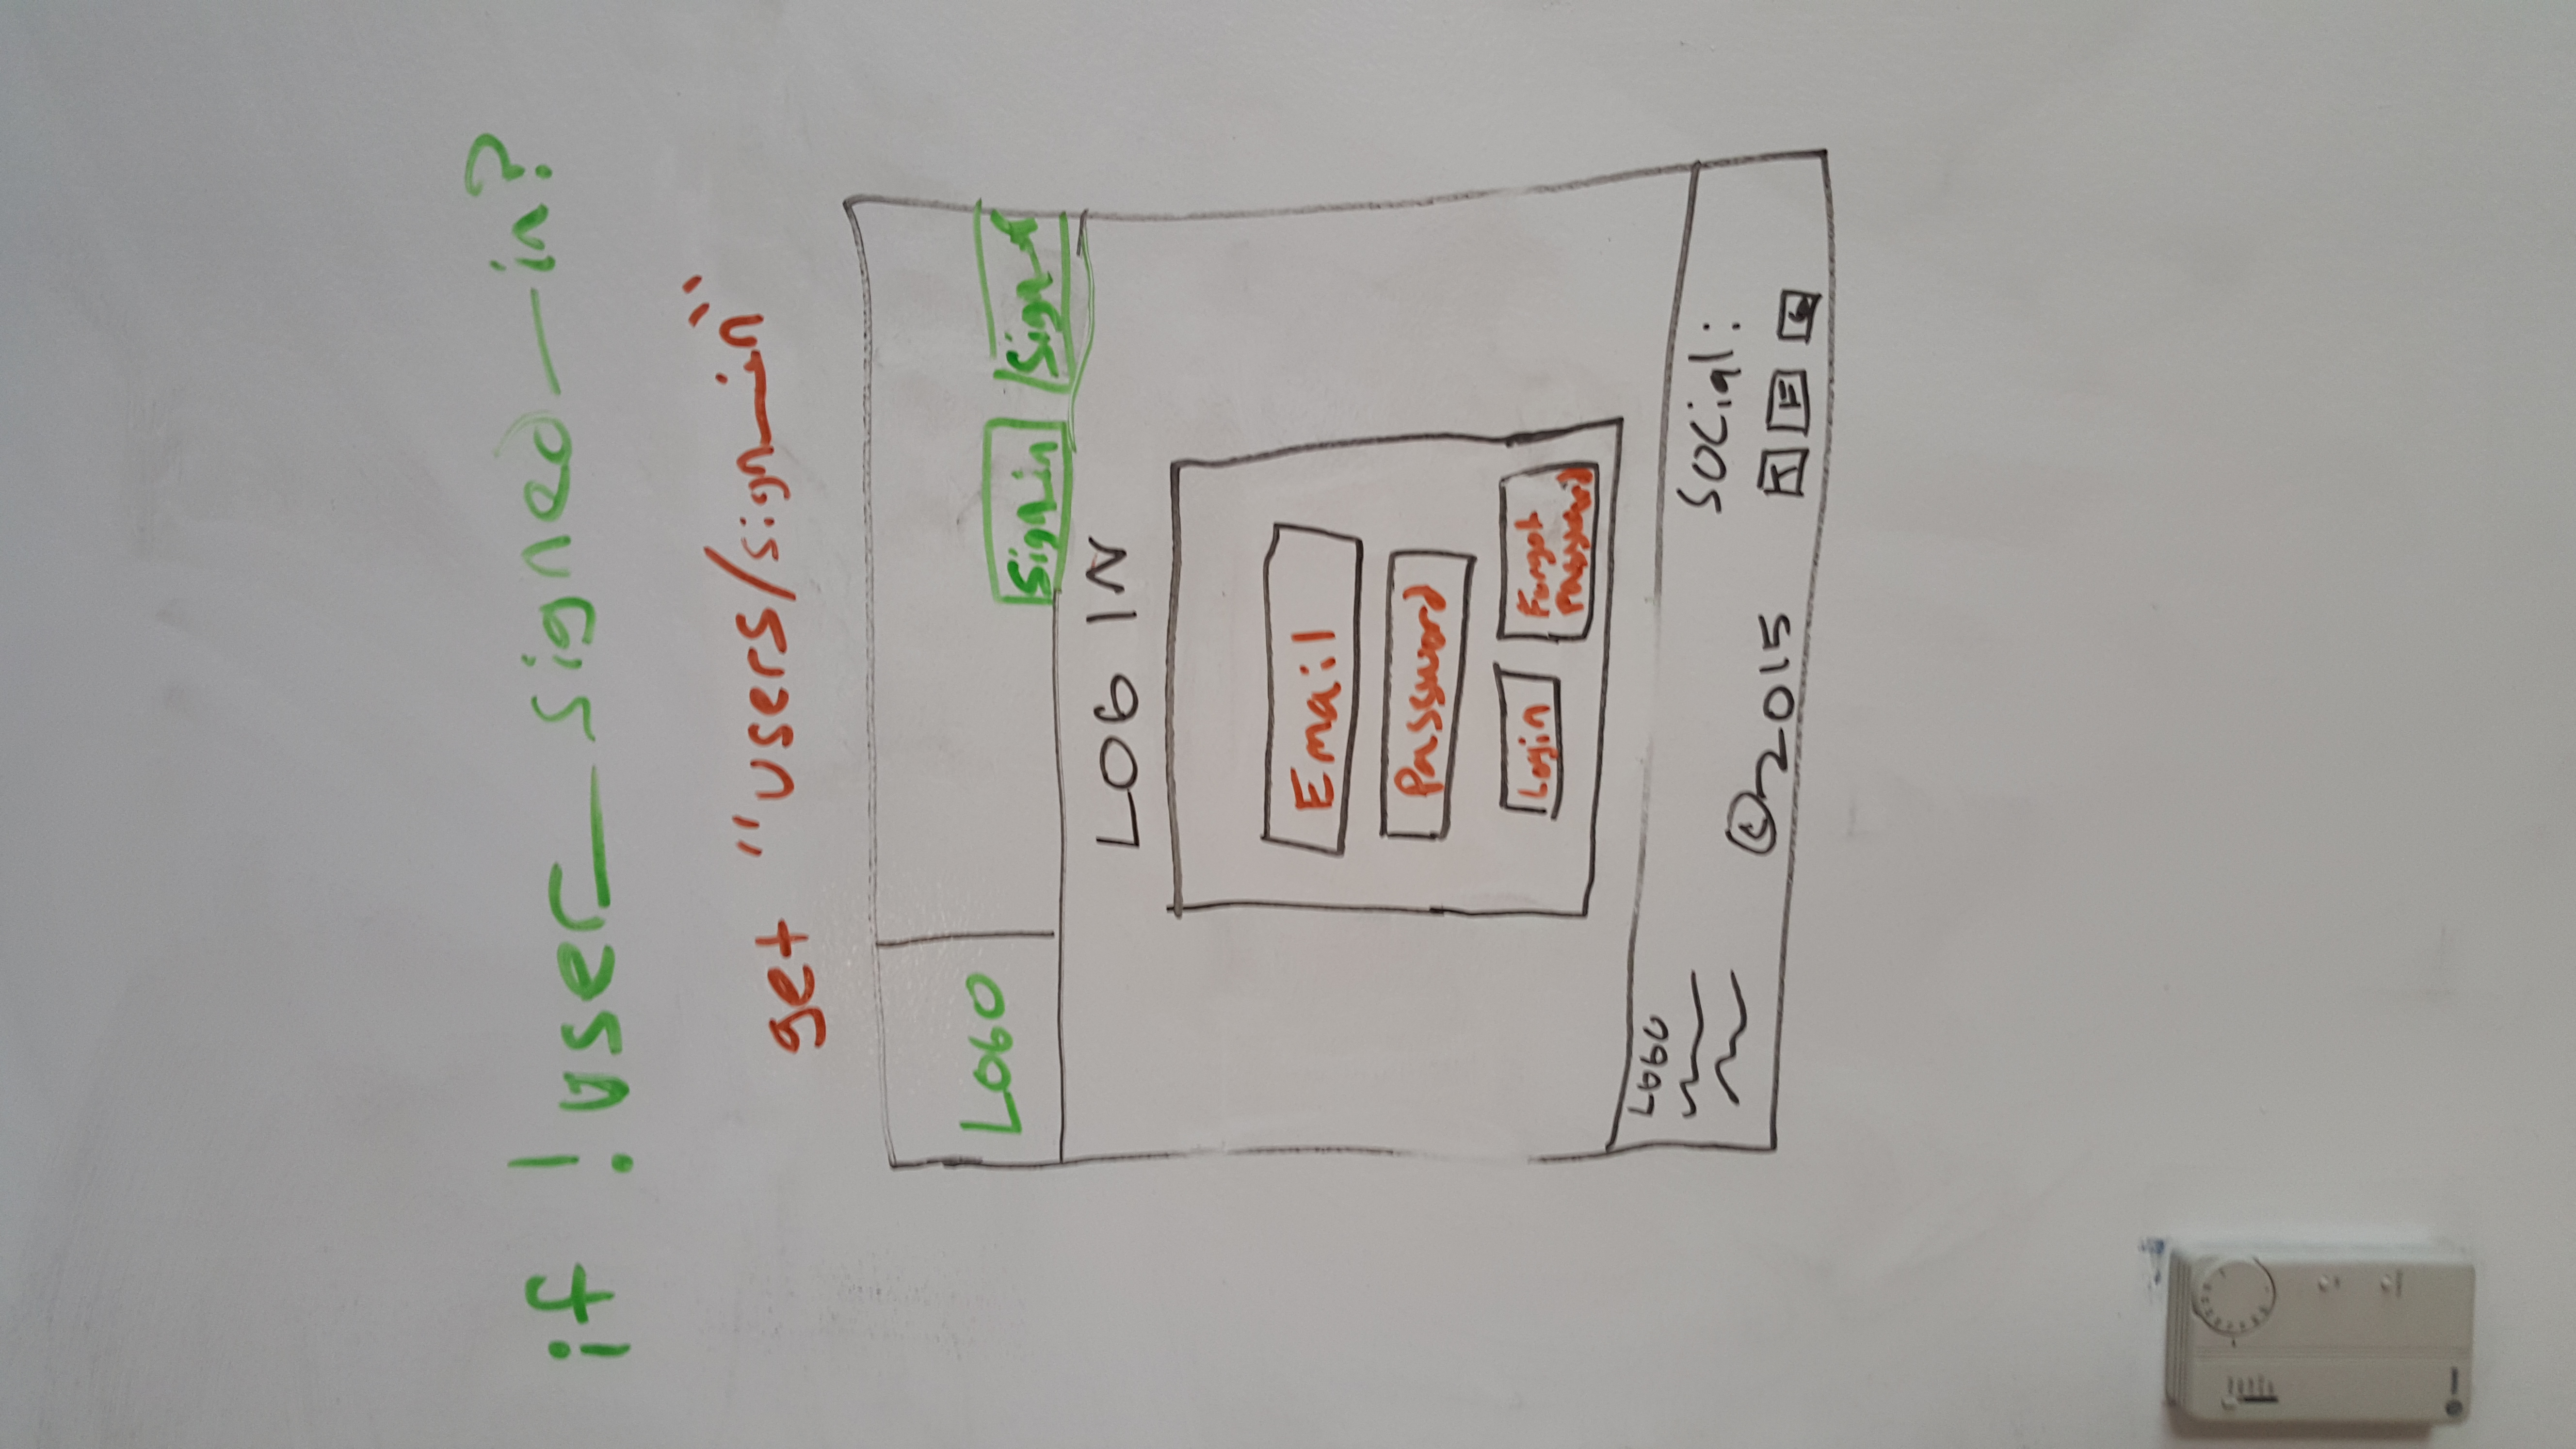 if !user_signed_in?
get "users/sign_in"
LOGO
Sign_in
LOG IN
Email
Password
Login
Forgot
Password
LOGO
©2015
Social:
T F